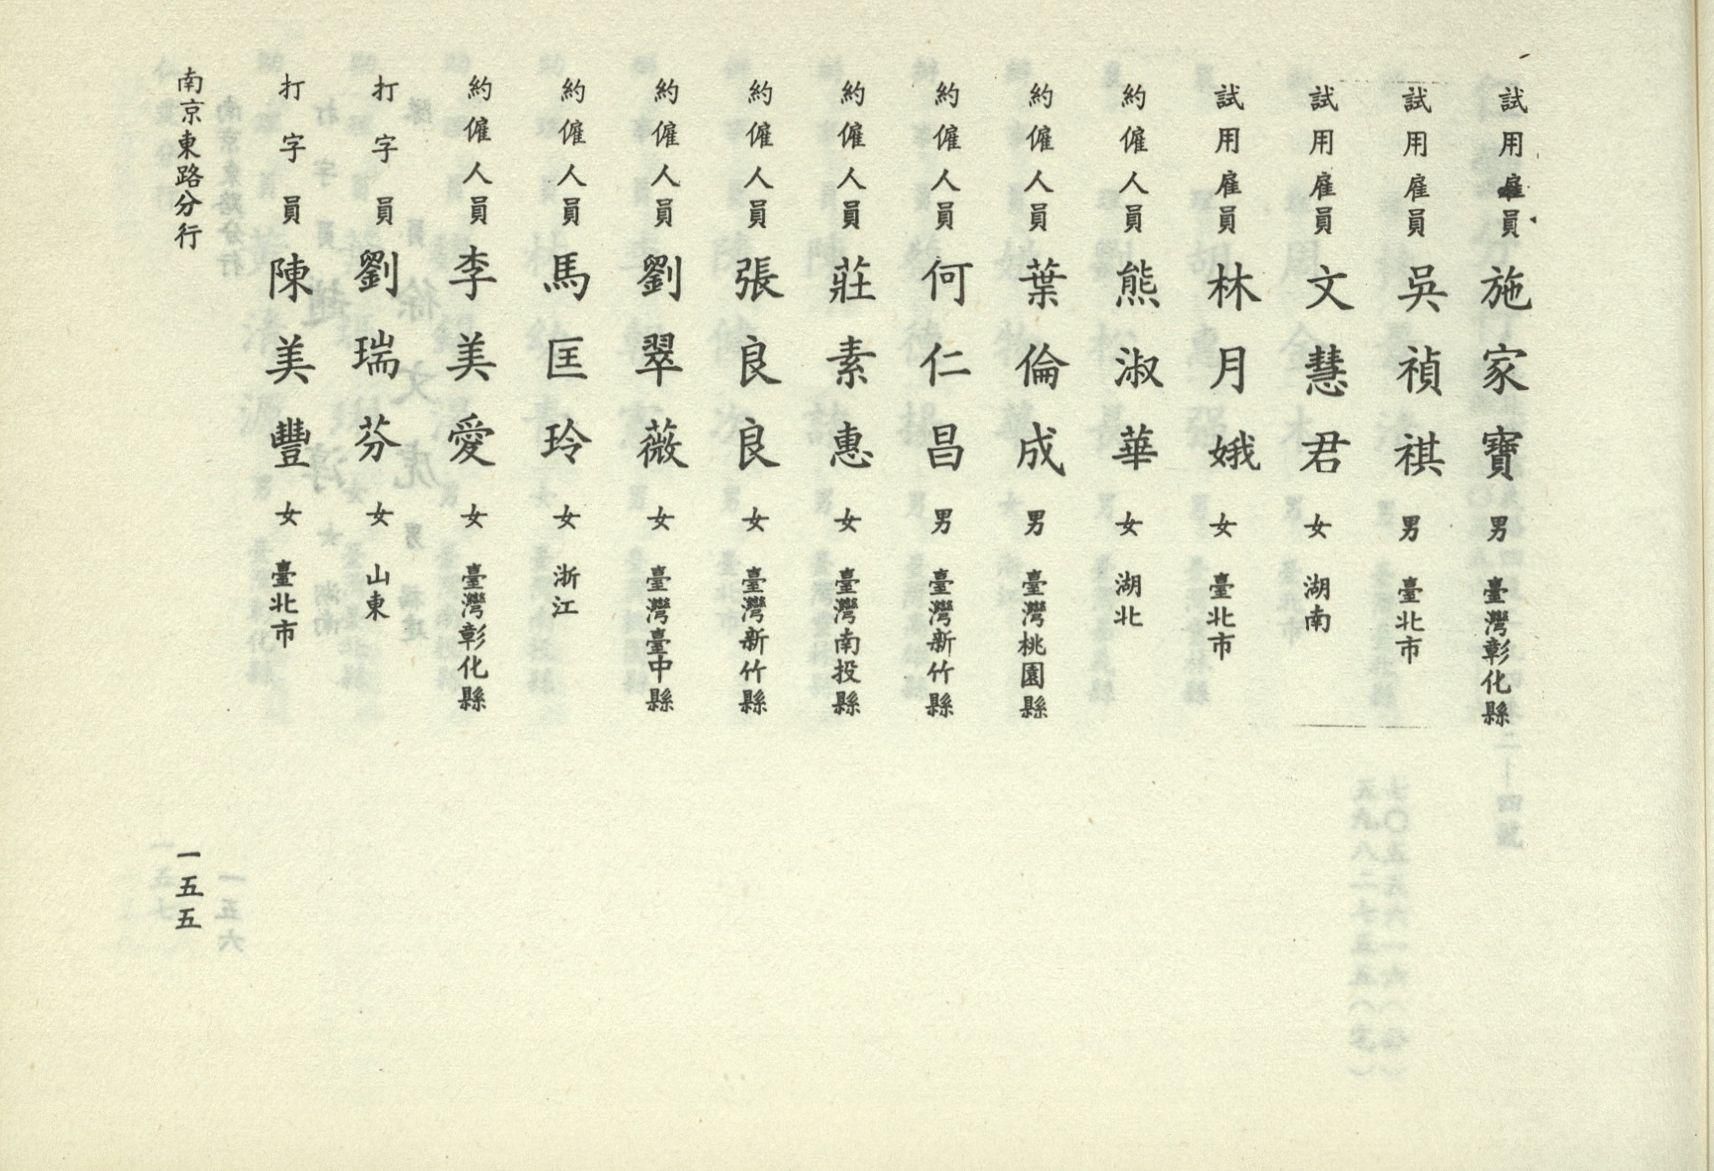 試用雇員 施家寶 男 臺灣彰化縣
試用雇員 吳禎祺 男 臺北市
試用雇員 文慧君 女 湖南
試用雇員 林月娥 女 臺北市
約僱人員 熊淑華 女 湖北
約僱人員 葉倫成 男 臺灣桃園縣
約僱人員 何仁昌 男 臺灣新竹縣
約僱人員 莊素惠 女 臺灣南投縣
約僱人員 張良良 女 臺灣新竹縣
約僱人員 劉翠薇 女 臺灣臺中縣
約僱人員 馬匡玲 女 浙江
約僱人員 李美愛 女 臺灣彰化縣
打字員 劉瑞芬 女 山東
打字員 陳美豐 女 臺北市
南京東路分行
一五五